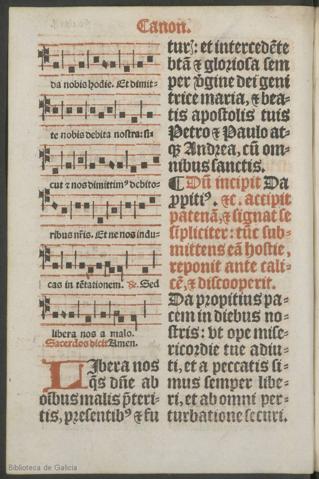 Canon.
da nobis hodie. Et dimit-
te nobis debita nostra: si-
cut ⁊ nos dimittimꝰ debito-
ribus nr̄is. Et ne nos indu-
cas in tētationem. ꝶ. Sed
libera nos a malo.
Sacerdos dicit Amen.
LIbera nos
q̄s dn̄e ab
oībus malis p̄teri-
tis, presentibꝰ ⁊ fu
turꝭ: et intercedēte
btā ⁊ gloriosa sem
per v̄gine dei geni
trice maria, ⁊ bea-
tis apostolis tuis
Petro ⁊ Paulo at-
qꝫ Andrea, cū om-
nibus sanctis.
¶ Dū incipit Da
ppitiꝰ. ⁊c. accipit
patenā, ⁊ signat se
sīpliciter: tūc sub-
mittens eā hostie,
reponit ante cali-
cē, ⁊ discooperit.
Da propitius pa-
cem in diebus no-
stris: vt ope mise-
ricordie tue adiu-
ti, et a peccatis si-
mus semper libe-
ri, et ab omni per-
turbatione securi.
Biblioteca de Galicia